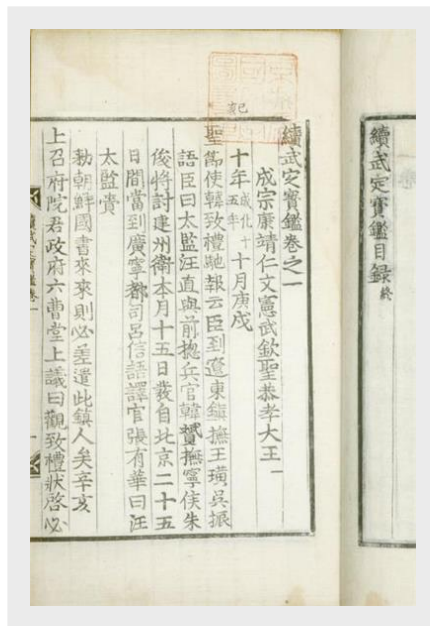 續武定寶鑑目錄終
續武定寶鑑卷之一
成宗康靖仁文憲武欽聖恭孝大王一
己亥
十年成化十五年十月庚戌
聖節使韓致禮馳報云臣到遼東鎭撫王璜吳振
語臣曰太監汪直與前摠兵官韓贇撫寧侯朱
俊將討建州衛本月十五日發自北京二十五
日間當到廣寧都司呂信語譯官張有華曰汪
太監賫
勑朝鮮國書來來則必差遣此鎭人矣辛亥
上召府院君政府六曹堂上議曰觀致禮狀啓必